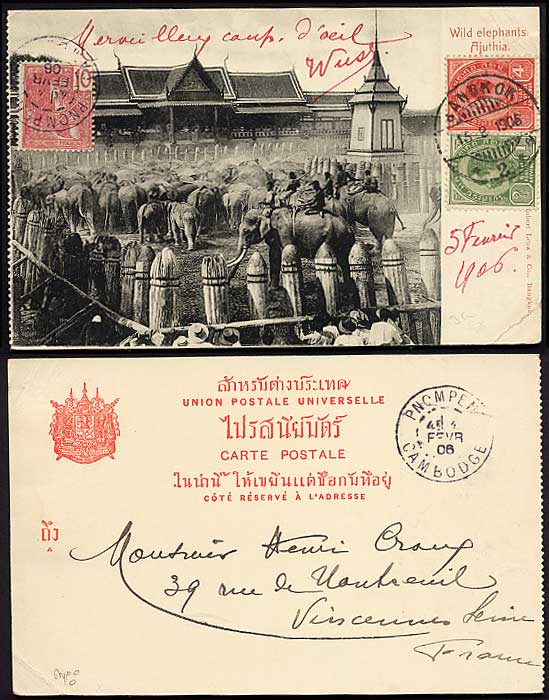 Merveilleux coup d'oeil
Wild elephants
Ajuthia.
10
PNOMPENH
FEVR
06
BANGKOK
1906
2
5 Fevrier
1906.
& Co., Bangkok
สำหรับต่างประเทศ
UNION POSTALE UNIVERSELLE
ไปรสนียบัตร์
CARTE POSTALE
ในน่านี้ ให้เขียนแต่ชื่อกับที่อยู่
CÔTÉ RÉSERVÉ À L'ADRESSE
PNOMPENH
FEVR
06
CAMBODGE
ถึง
A
Monsieur Henri
39 rue de Montreuil
Vincennes Seine
France